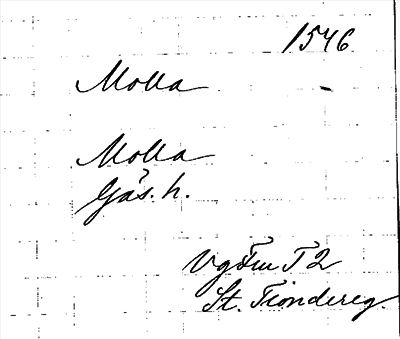 1546
Molla
Molla
Gäs. h.
Vg Fm T 2
St. Tiondereg.